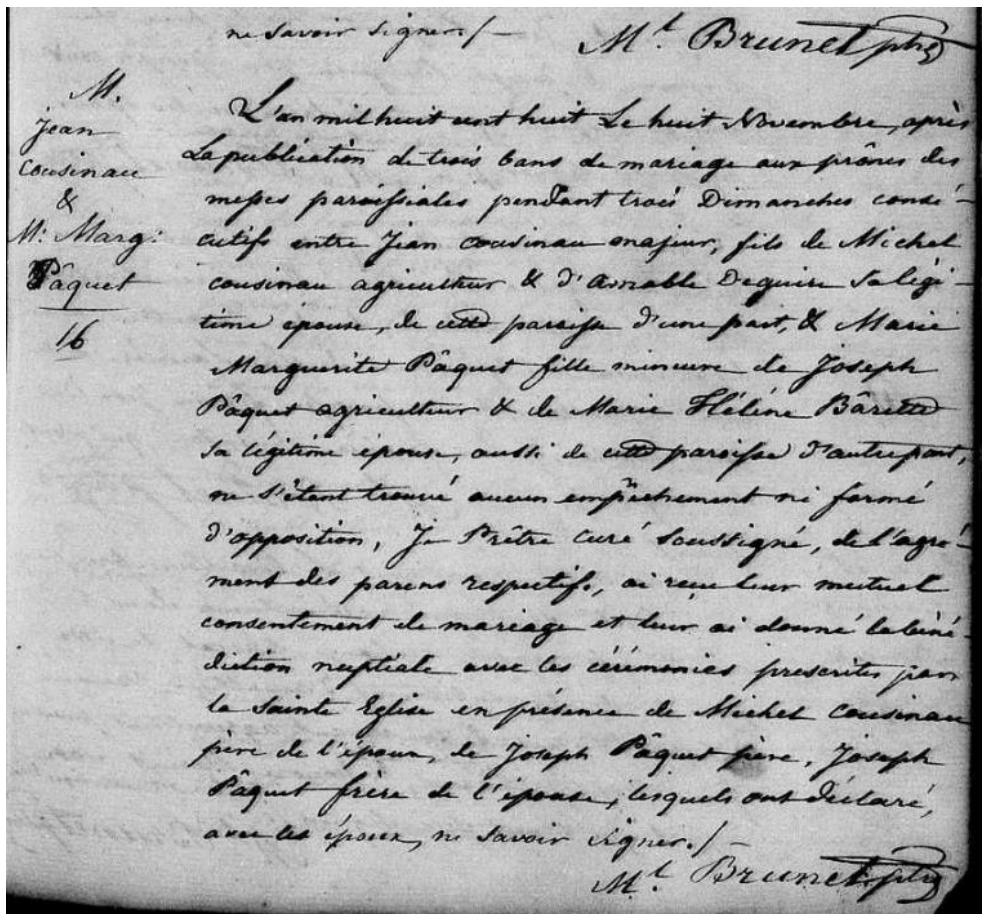 ne savoir signer ./—
Mt. Brunet ptre
M.
Jean
Cousinau
&
M: Marg:
Pâquet
16
L'an mil huit cent huit Le huit Novembre, après
La publication de trois bans de mariage aux prônes des
messes paroissiales pendant trois Dimanches consé-
cutifs entre Jean cousinau majeur, fils de Michel
cousinau agriculteur & d'amable Deguire sa légi-
time épouse, de cette paroisse d'une part, & Marie
Marguerite Pâquet fille mineure de Joseph
Pâquet agriculteur & de Marie Hélène Bârette
sa légitime épouse, aussi de cette paroisse d'autre part,
ne s'étant trouvé aucun empêchement ni formé
d'opposition, Je Prêtre curé soussigné, de l'agré-
ment des parens respectifs, ai reçu leur mutuel
consentement de mariage et leur ai donné la béné-
diction nuptiale avec les cérémonies prescrites par
la Sainte Eglise en présence de Michel Cousinau
père de l'époux, de Joseph Pâquet père, Joseph
Pâquet frère de l'épouse, lesquels ont déclaré,
avec les époux, ne savoir signer./—
Mt. Brunet ptre